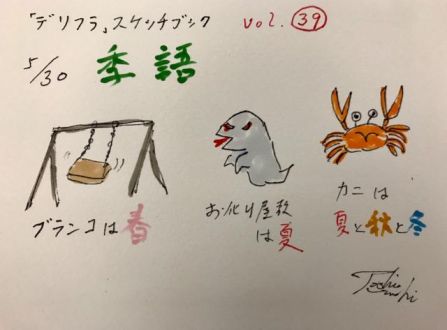 「デリフラ」スケッチブック vol.39
5/30 季語
ブランコは春
お化け屋敷
は夏
カニは
夏と秋と冬